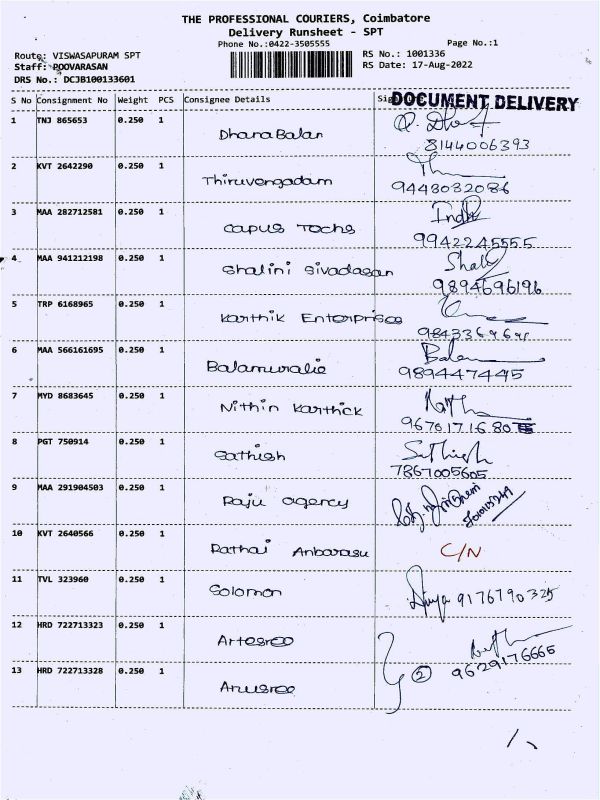 THE PROFESSIONAL COURIERS, Coimbatore
Delivery Runsheet - SPT
Phone No.:0422-3505555
Page No.:1
Route: VISWASAPURAM SPT
RS No.: 1001336
Staff: POOVARASAN
RS Date: 17-Aug-2022
DRS No.: DCJB100133601
S No Consignment No Weight PCS Consignee Details
DOCUMENT DELIVERY
1 TNJ 865653 0.250 1 DhanaBalan
8144006393
2 KVT 2642290 0.250 1 Thiruvengadam
9443032086
3 MAA 282712581 0.250 1 Capus Techs
9942245555
4 MAA 941212198 0.250 1 Shalini Sivadasan
9894696196
5 TRP 6168965 0.250 1 Karthik Enterprises
6 MAA 566161695 0.250 1 Balamuralie
9894447445
7 MYD 8683645 0.250 1 Nithin Karthick
8 PGT 750914 0.250 1 Sathish Sathish
7867005605
9 MAA 291904503 0.250 1 Raju agency
10 KVT 2640566 0.250 1 Rathai Anbarasu C/N
11 TVL 323960 0.250 1 Solomon Divya 9176790325
12 HRD 722713323 0.250 1 Artesree
2 9629176665
13 HRD 722713328 0.250 1 Anusree